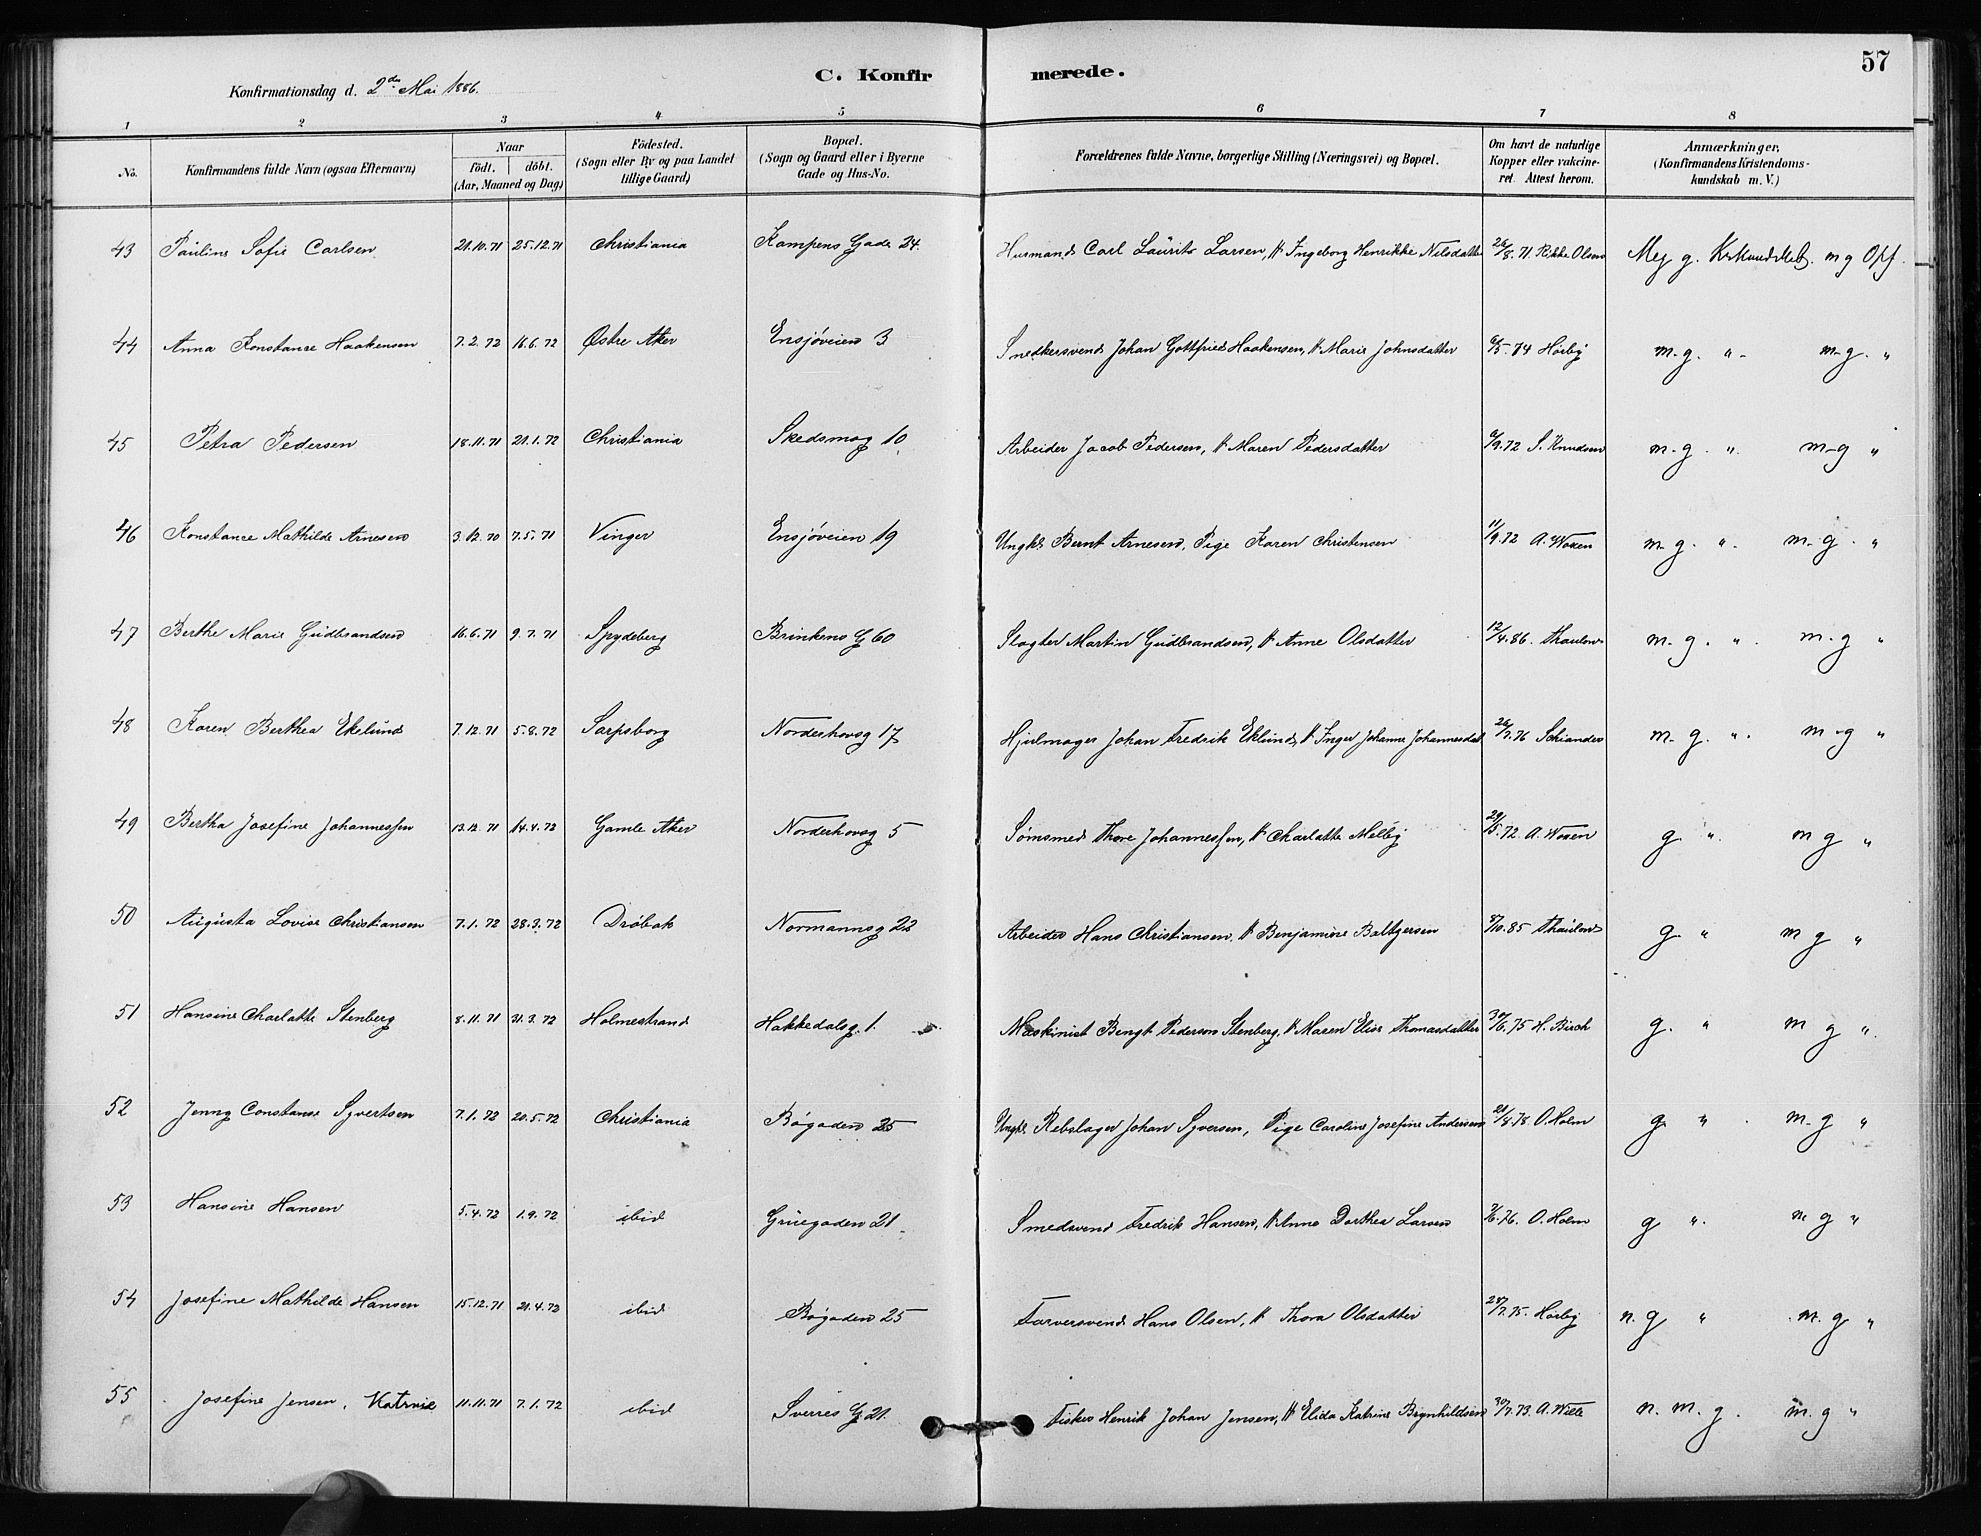 57
C. Konfirmerede.
Konfirmationsdag d. 2den Mai 1886.
1 2 3 4 5 6 7 8
No. Konfirmandens fulde Navn (ogsaa Efternavn) Naar födt. döbt. (Aar, Maaned og Dag) Födested. (Sogn eller By og paa Landet tillige Gaard) Bopæl. (Sogn og Gaard eller i Byerne Gade og Hus-No. Forældrenes fulde Navne, borgerlige Stilling (Næringsvei) og Bopæl. Om havt de naturlige Kopper eller vakcineret. Attest herom. Anmærkninger. (Konfirmandens Kristendomskundskab m. V.)
43 Pauline Sofie Carlsen 21.10.71 25.12.71 Christiania Kampens Gade 24. Husmand Carl Laurits Larsen, H Ingeborg Henrikke Nilsdatter 26/8.71 Rikke Olsen Meg g. m g Opf.
44 Anna Konstance Haakensen 7.2.72 16.6.72 Østre Aker Ensjøveien 3 Snedkersvend Johan Gottfried Haakensen, H Marie Johnsdatter 6/5.74 Hörbÿ m.g. " - m-g. "
45 Petra Pedersen 18.11.71 21.1.72 Christiania Skedsmog 10. Arbeider Jacob Pedersen, H Maren Pedersdatter 6/9.72 S. Knudsen m-g. " m-g "
46 Konstance Mathilde Arnesen 3.12.70 7.5.71 Vinger Ensjøveien 19 Ungk. Bernt Arnesen, Pige Karen Christensen 11/9.72 A. Woxen m-g. " m-g. "
47 Berthe Marie Gudbrandsen 16.6.71 9.7.71 Spydeberg Brinkens G 60 Slagter Martin Gudbrandsen, H Anne Olsdatter 12/4.86. Thaulow m-g. " m.g "
48 Karen Berthea Ekelund 7.12.71 5.8.72 Sarpsborg Norderhovsg 17 Hjulmager Johan Fredrik Eklund, H Inger Johanne Johannesdat 26/7.76 Schiander m-g. " m-g "
49 Bertha Josefine Johannessen 13.12.71 14.4.72 Gamle Aker Norderhovsg 5 Sømsmed Thore Johannessen, H Charlotte Melbÿ 29/5.72. A. Woxen g " m g "
50 Augusta Lovise Christiansen 7.1.72 28.3.72 Dröbak Normannsg 22 Arbeider Hans Christiansen, H Benjamine Baltzersen 8/10.85 Thaulow g " m g "
51 Hansine Charlotte Stenberg 8.11.71 31.3.72 Holmestrand Hakkedalsg. 1. Maskinist Bengt Pederson Stenberg, H Maren Elise Thomasdatter 30/6.75 H. Birch g. " m g "
52 Jenny Constanse Syvertsen 7.1.72 20.5.72 Christiania Bøgaden 25 Ungk. Rebslager Johan Syversen, Pige Caroline Josefine Andersen 21/8.78. O. Holm g " m-g "
53 Hansine Hansen 5.4.72 1.9.72 ibid Grüegaden 21. Smedsvend Fredrik Hansen, H Anne Dorthea Larsen 7/6.76. O. Holm g " m g "
54 Josefine Mathilde Hansen 15.12.71 21.4.72 ibid Bøgaden 25 Farversvend Hans Olsen, H Thora Olsdatter 28/7.75. Hörbÿ n.g " m.g "
55 Josefine Jensen, Katrine 11.11.71 7.1.72 ibid Sverres G 21. Fisker Henrik Johan Jensen, H Elida Katrine Brynhildsen 30/7.73. A. Wille n. m. g. m.g "